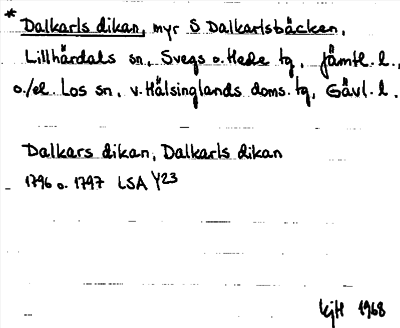 * Dalkarls dikan, myr S Dalkarlsbäcken,
Lillhärdals sn, Svegs o. Hede tg, Jämtl. l.,
o./el. Los sn, v. Hälsinglands doms. tg, Gävl. l.
Dalkars dikan, Dalkarls dikan
1796 o. 1797 LSA Y23
KjH 1968